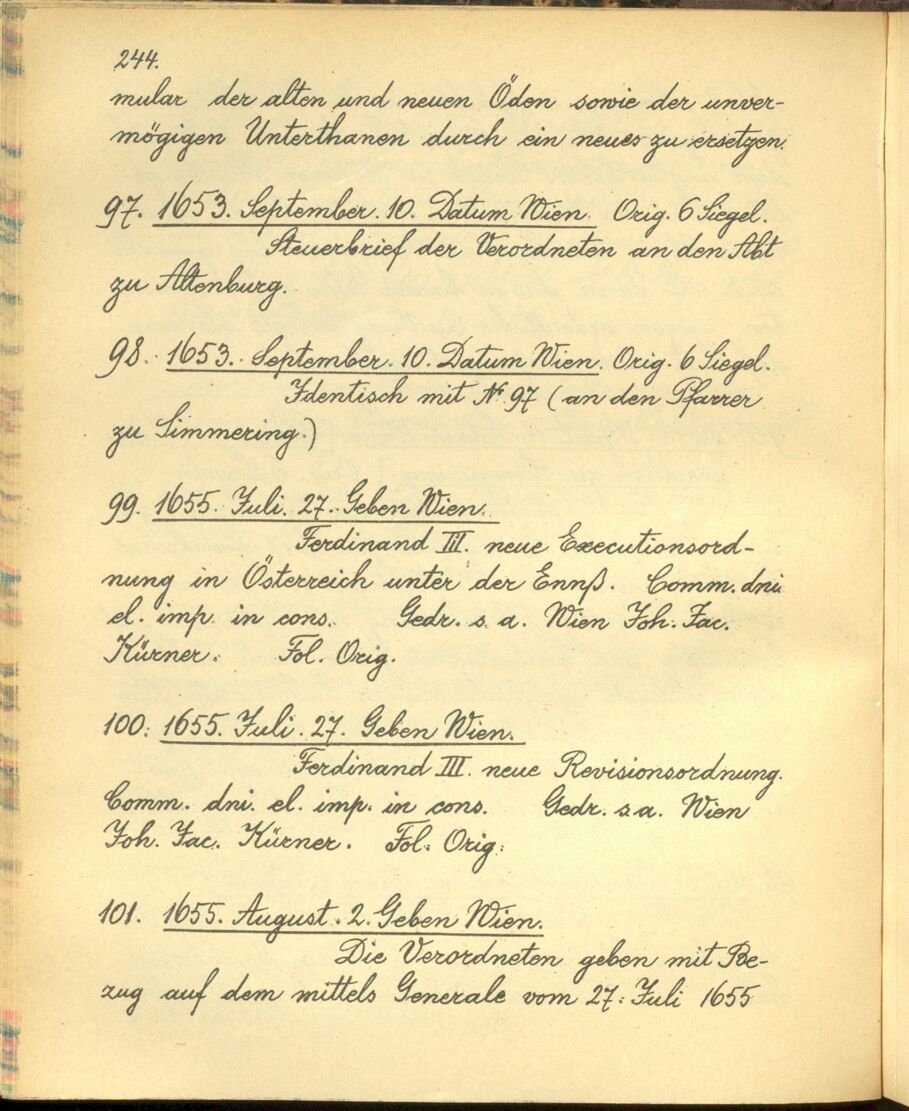 244.
mular der alten und neuen Öden sowie der unver-
mögigen Unterthanen durch ein neues zu ersetzen.
97. 1653. September. 10. Datum Wien. Orig. 6 Siegel.
Steuerbrief der Verordneten an den Abt
zu Altenburg.
98. 1653. September. 10. Datum Wien. Orig. 6 Siegel.
Identisch mit Nr. 97 (an den Pfarrer
zu Simmering.)
99. 1655. Juli. 27. Geben Wien.
Ferdinand III. neue Executionsord-
nung in Österreich unter der Ennß. Comm. dni.
el. imp. in cons. Gedr. s. a. Wien Joh. Jac.
Kürner. Fol. Orig.
100. 1655. Juli. 27. Geben Wien.
Ferdinand III. neue Revisionsordnung.
Comm. dni. el. imp. in cons. Gedr. s. a. Wien
Joh. Jac. Kürner. Fol. Orig.
101. 1655. August. 2. Geben Wien.
Die Verordneten geben mit Be-
zug auf dem mittels Generale vom 27. Juli 1655